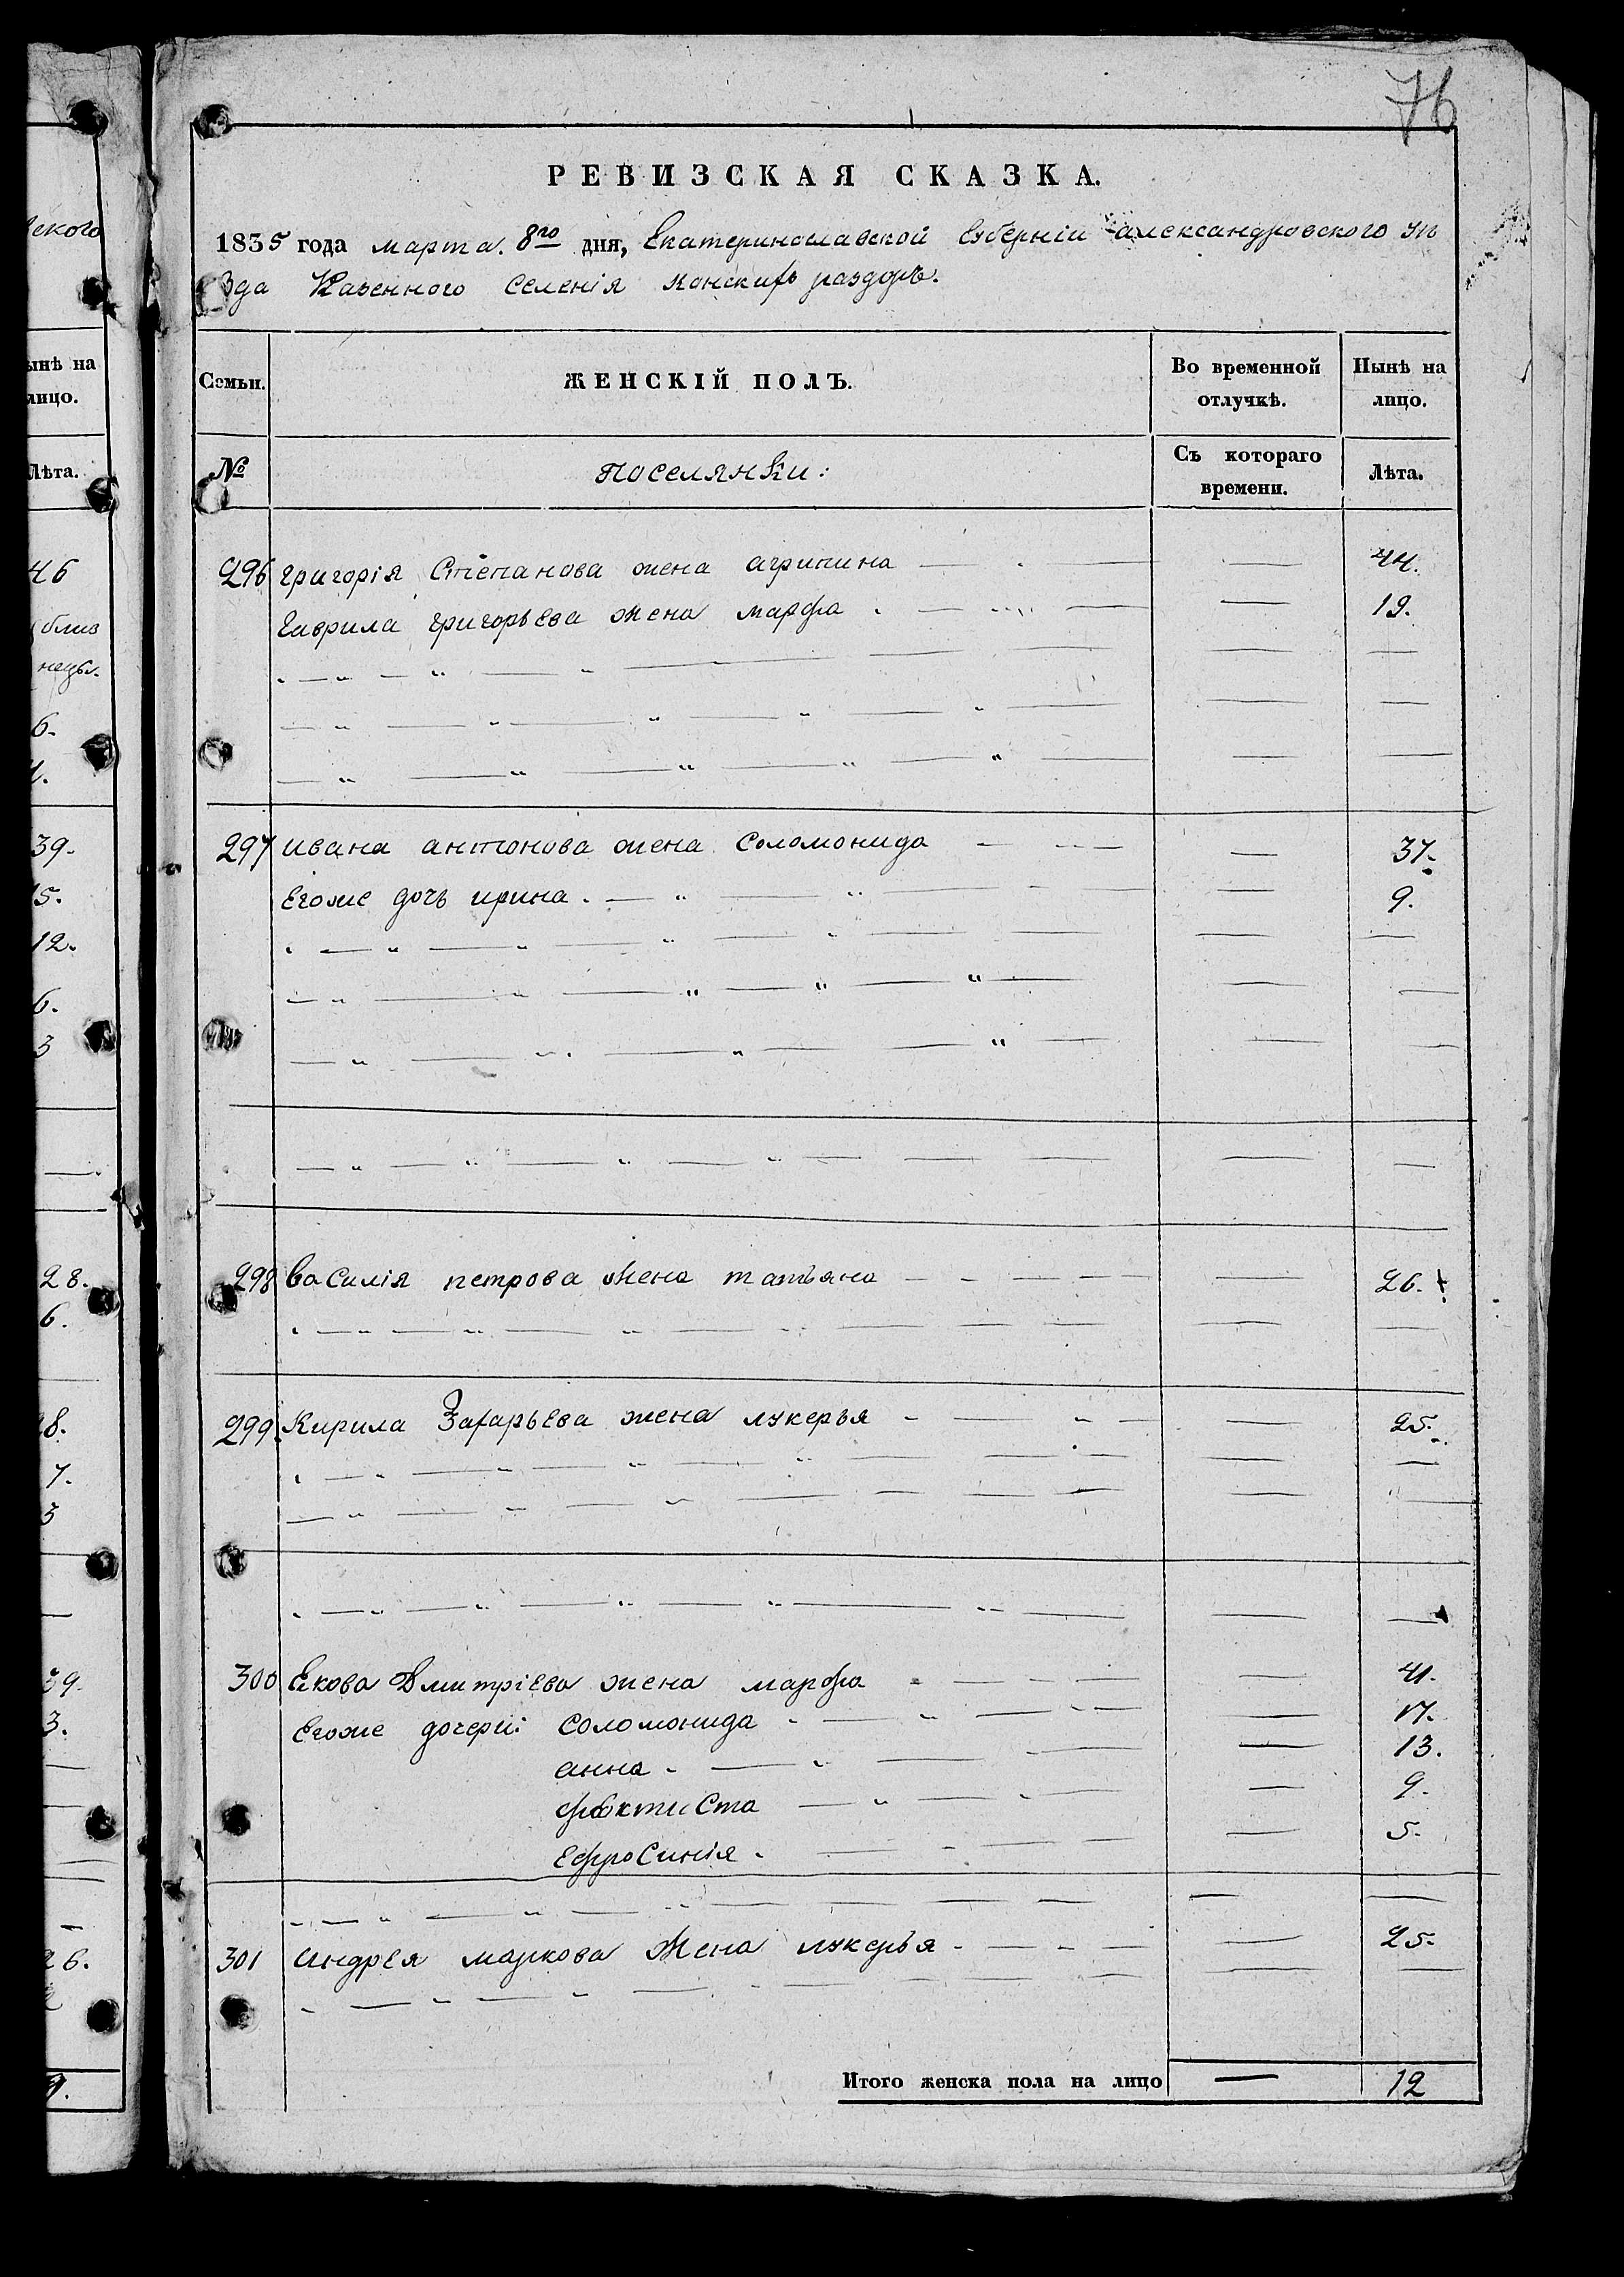 ского
ынѣ на
лицо.
Лѣта.
46
6.
39.
15.
12.
6.
3
28.
6.
8.
7.
3
39.
3.
26.
9.
76
РЕВИЗСКАЯ СКАЗКА.
1835 года марта 8го дня, Екатеринославской Губерніи александровского уѣ
зда Казенного селенія конскихъ раздоръ.
Семьи. ЖЕНСКІЙ ПОЛЪ. Во временной отлучкѣ. Нынѣ на лицо.
№ поселянки: Съ котораго времени. Лѣта.
296 григорія Степанова жена агрипина — 44.
Гаврила григорьева жена марфа — 19.
297 ивана антонова жена Соломонида — 37.
Егоже дочь ирина — 9.
298 василія петрова жена татьяна — 26.
299. Кирила Захарьева жена лукерья — 25.
300 Якова Дмитріева жена марфа — 41.
Егоже дочери: Соломонида — 17.
анна — 13.
феоктиста — 9.
Ефросинія — 5.
301 андрея маркова жена лукерья — 25.
Итого женска пола на лицо — 12